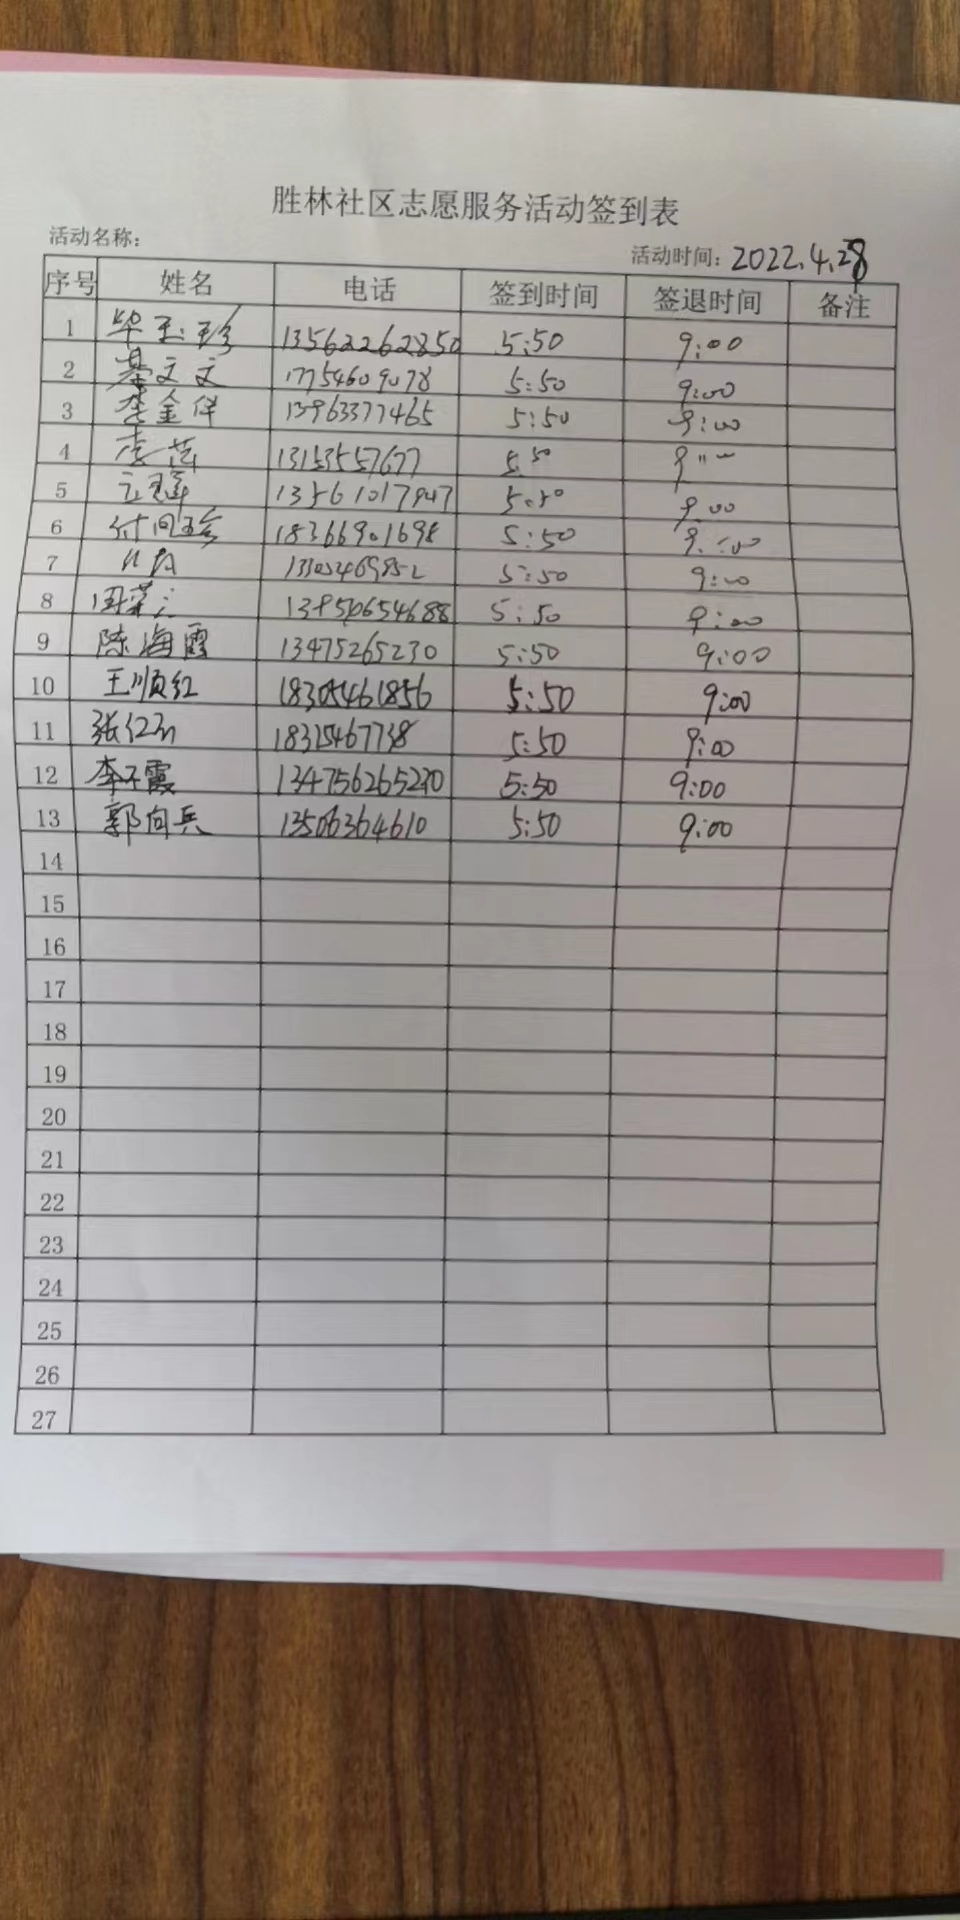 胜林社区志愿服务活动签到表
活动名称： 活动时间：2022.4.28
序号 姓名 电话 签到时间 签退时间 备注
1 毕玉珍 13562262850 5:50 9:00
2 綦文文 17754609078 5:50 9:00
3 李金伴 13963377465 5:50 9:00
4 李 13153557677 5:50
5 13561017947 5:50 9:00
6 18366901698 5:50 9:00
7 5:50 9:00
8 周荣 5:50 9:00
9 陈海霞 13475265230 5:50 9:00
10 王顺红 18305461856 5:50 9:00
11 张仁 18315467738 5:50 9:00
12 李不霞 5:50 9:00
13 郭向兵 13506364610 5:50 9:00
14
15
16
17
18
19
20
21
22
23
24
25
26
27